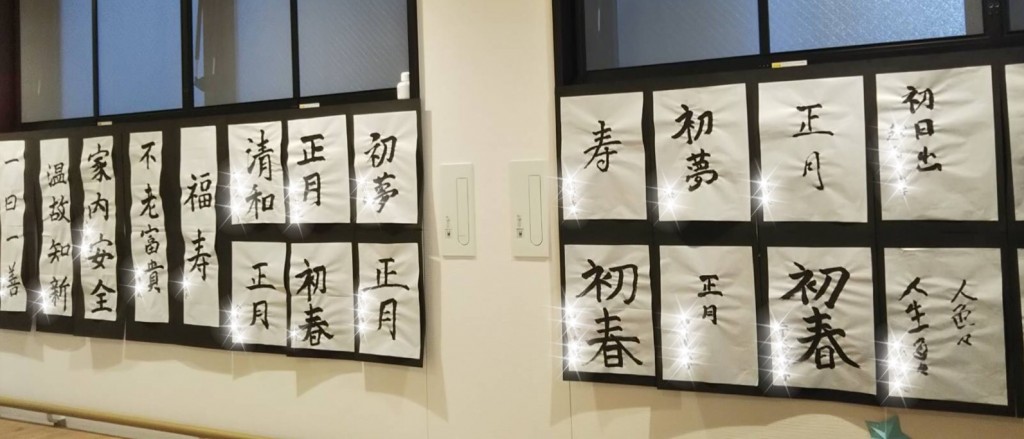 一日一善
温故知新
家内安全
不老富貴
福寿
清和
正月
初夢
正月
初春
正月
寿
初夢
正月
初日出
初春
正月
初春
人色々